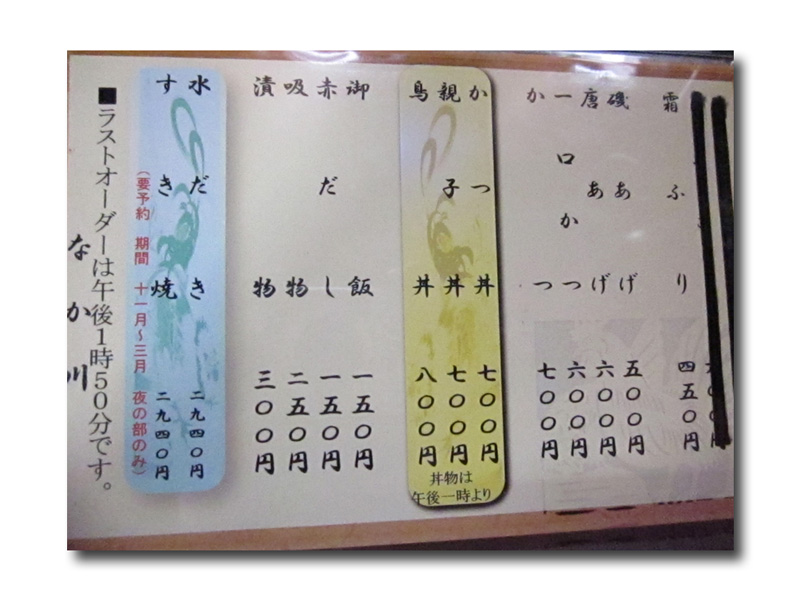 霜ふり 四五〇円
磯あげ 五〇〇円
唐あげ 六〇〇円
一口かつ 六〇〇円
かつ 七〇〇円
かつ丼 七〇〇円
親子丼 七〇〇円
鳥丼 八〇〇円
丼物は
午後一時より
御飯 一五〇円
赤だし 一五〇円
吸物 二五〇円
漬物 三〇〇円
水だき 二九四〇円
すき焼 二九四〇円
(要予約 期間 十一月～三月 夜の部のみ)
■ラストオーダーは午後1時50分です。
なか川